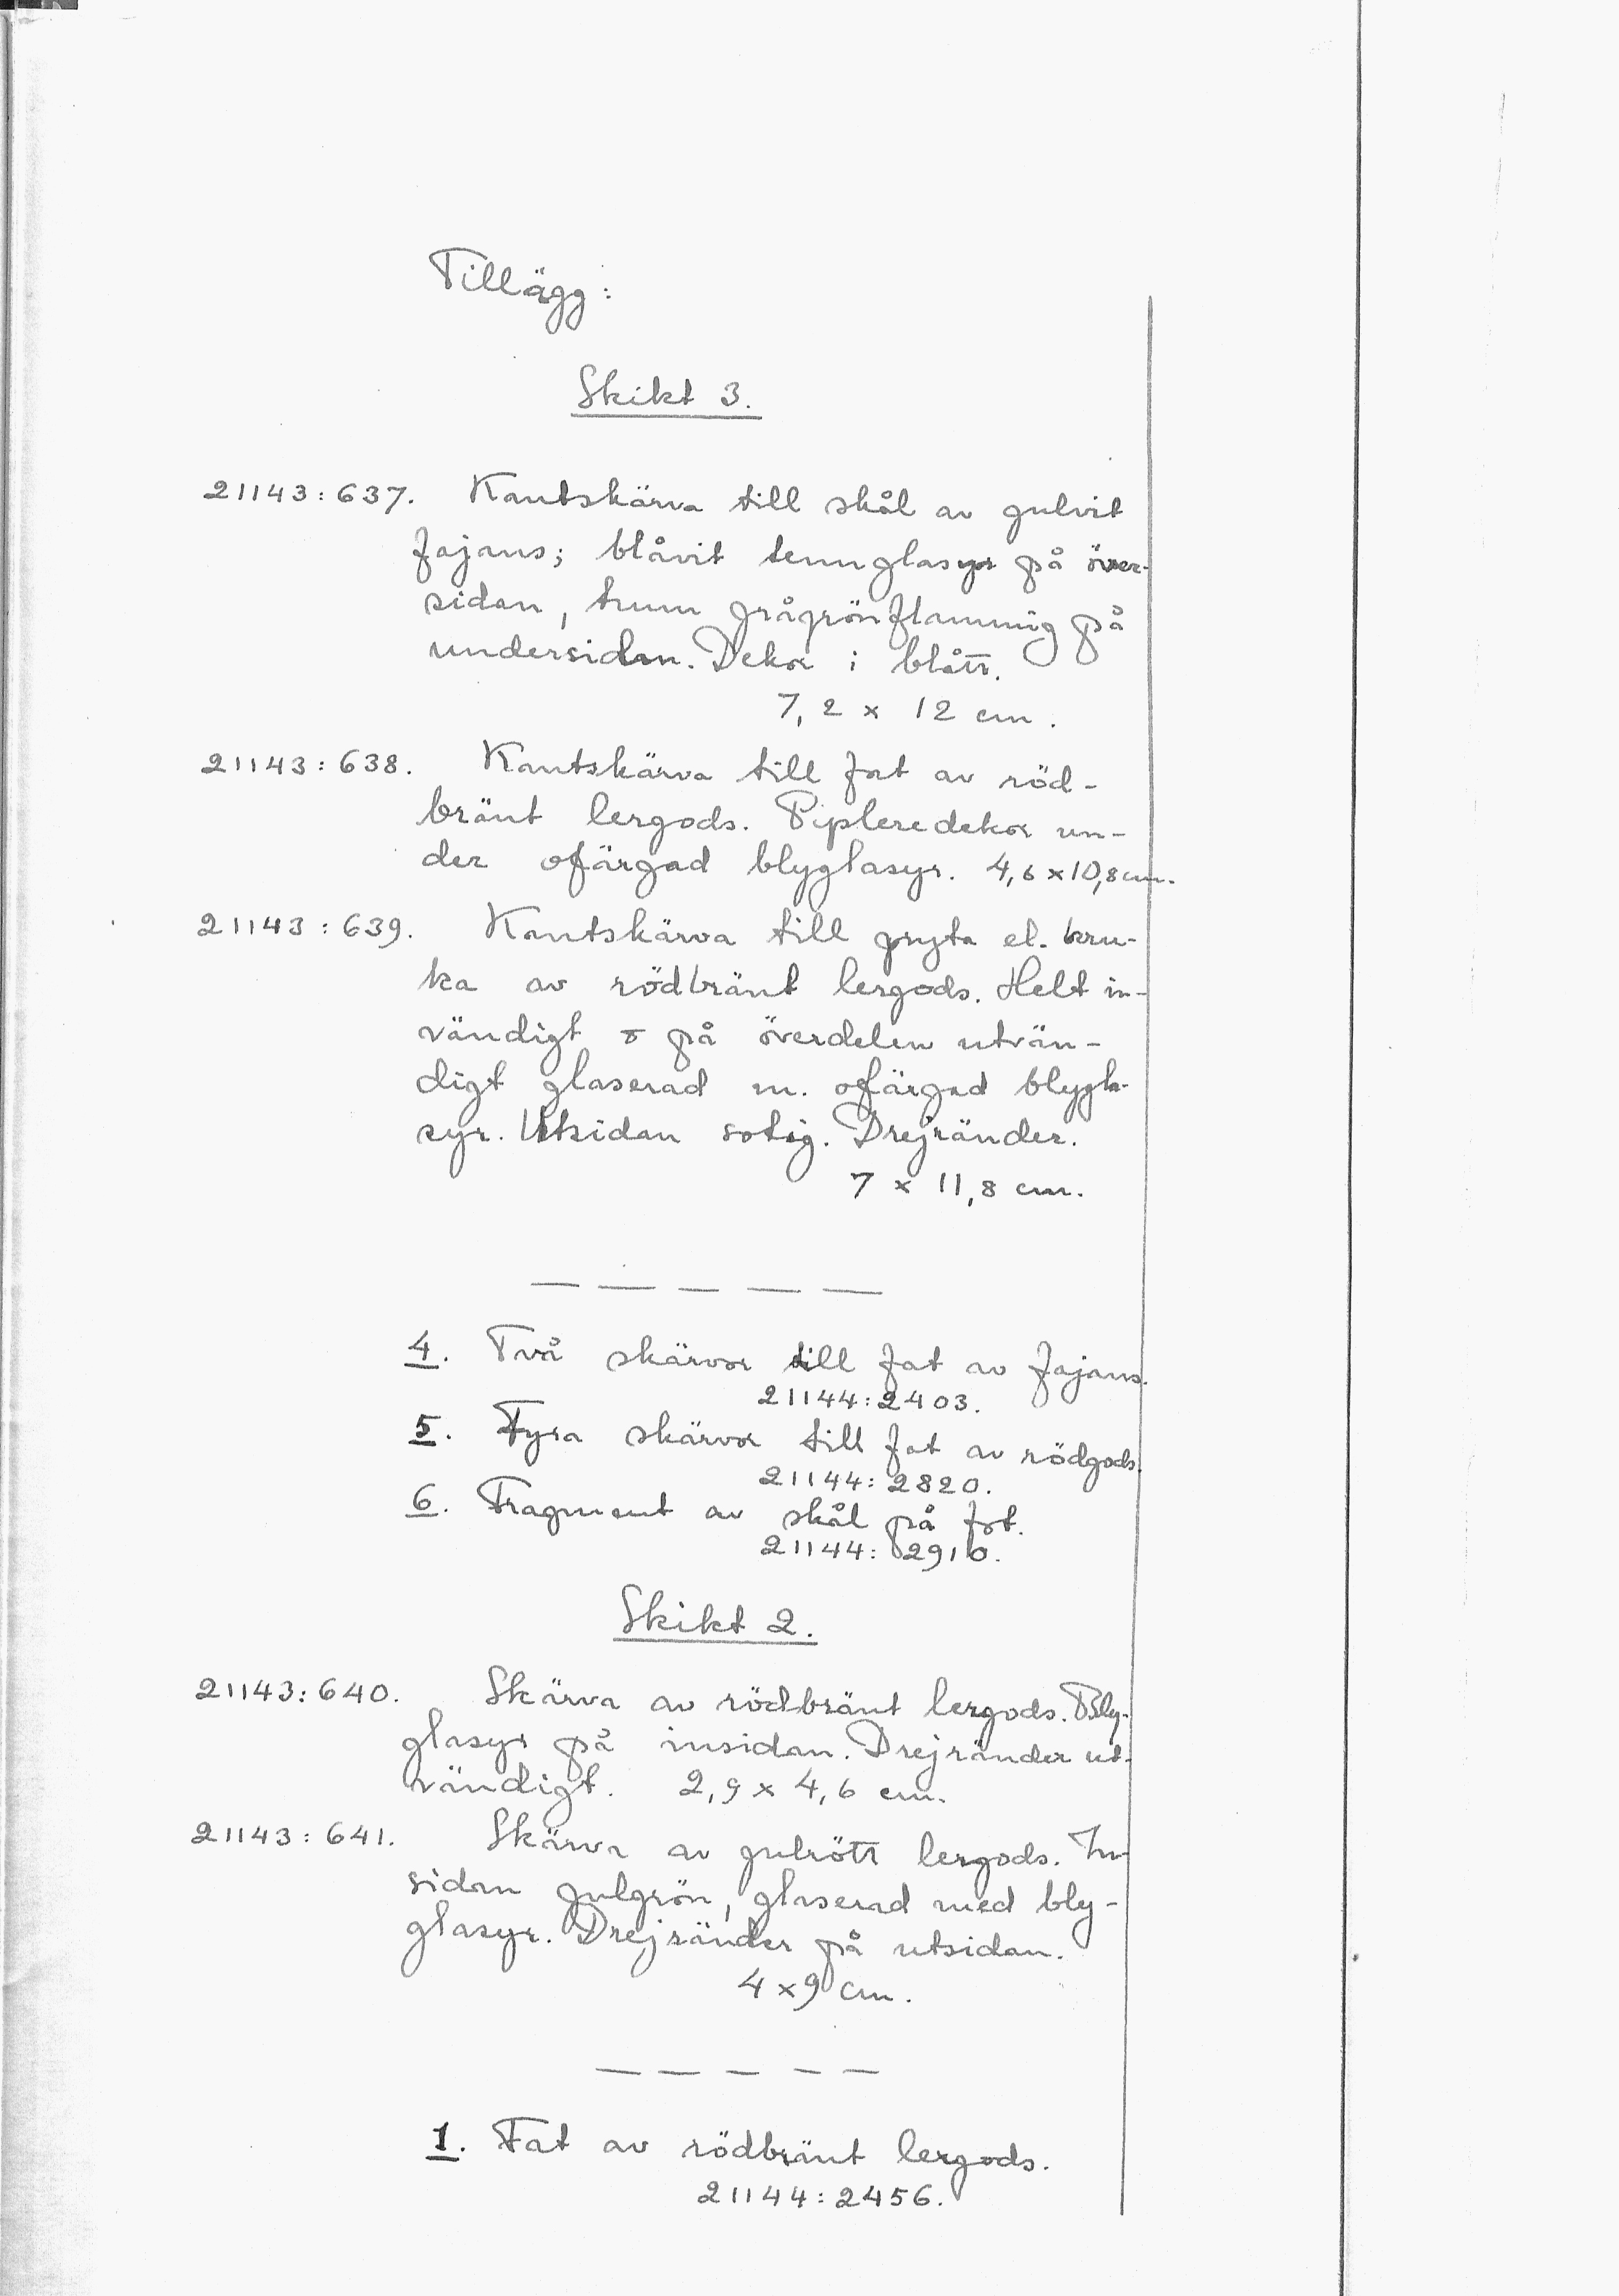 Tillägg:
Skikt 3.
21143:637. Kantskärva till skål av gulvit
fajans; blåvit tennglasyr på över-
sidan, tunn grågrönflammig på
undersidan. Dekor i blått.
7,2 x 12 cm.
21143:638. Kantskärva till fat av röd-
bränt lergods. Pipleredekor un-
der ofärgad blyglasyr. 4,6 x 10,8 cm.
21143:639. Kantskärva till gryta el. kru-
ka av rödbränt lergods. Helt in-
vändigt o på överdelen utvän-
digt glaserad m. ofärgad blygla-
syr. Utsidan sotig. Drejränder.
7 x 11,8 cm.
— — — — —
4. Två skärvor till fat av fajans.
21144:2403.
5. Fyra skärvor till fat av rödgods.
21144:2820.
6. Fragment av skål på fot.
21144:2910.
Skikt 2.
21143:640. Skärva av rödbränt lergods. Bly-
glasyr på insidan. Drejränder ut-
vändigt. 2,9 x 4,6 cm.
21143:641. Skärva av gulrött lergods. In-
sidan gulgrön, glaserad med bly-
glasyr. Drejränder på utsidan.
4 x 9 cm.
— — — — —
1. Fat av rödbränt lergods.
21144:2456.